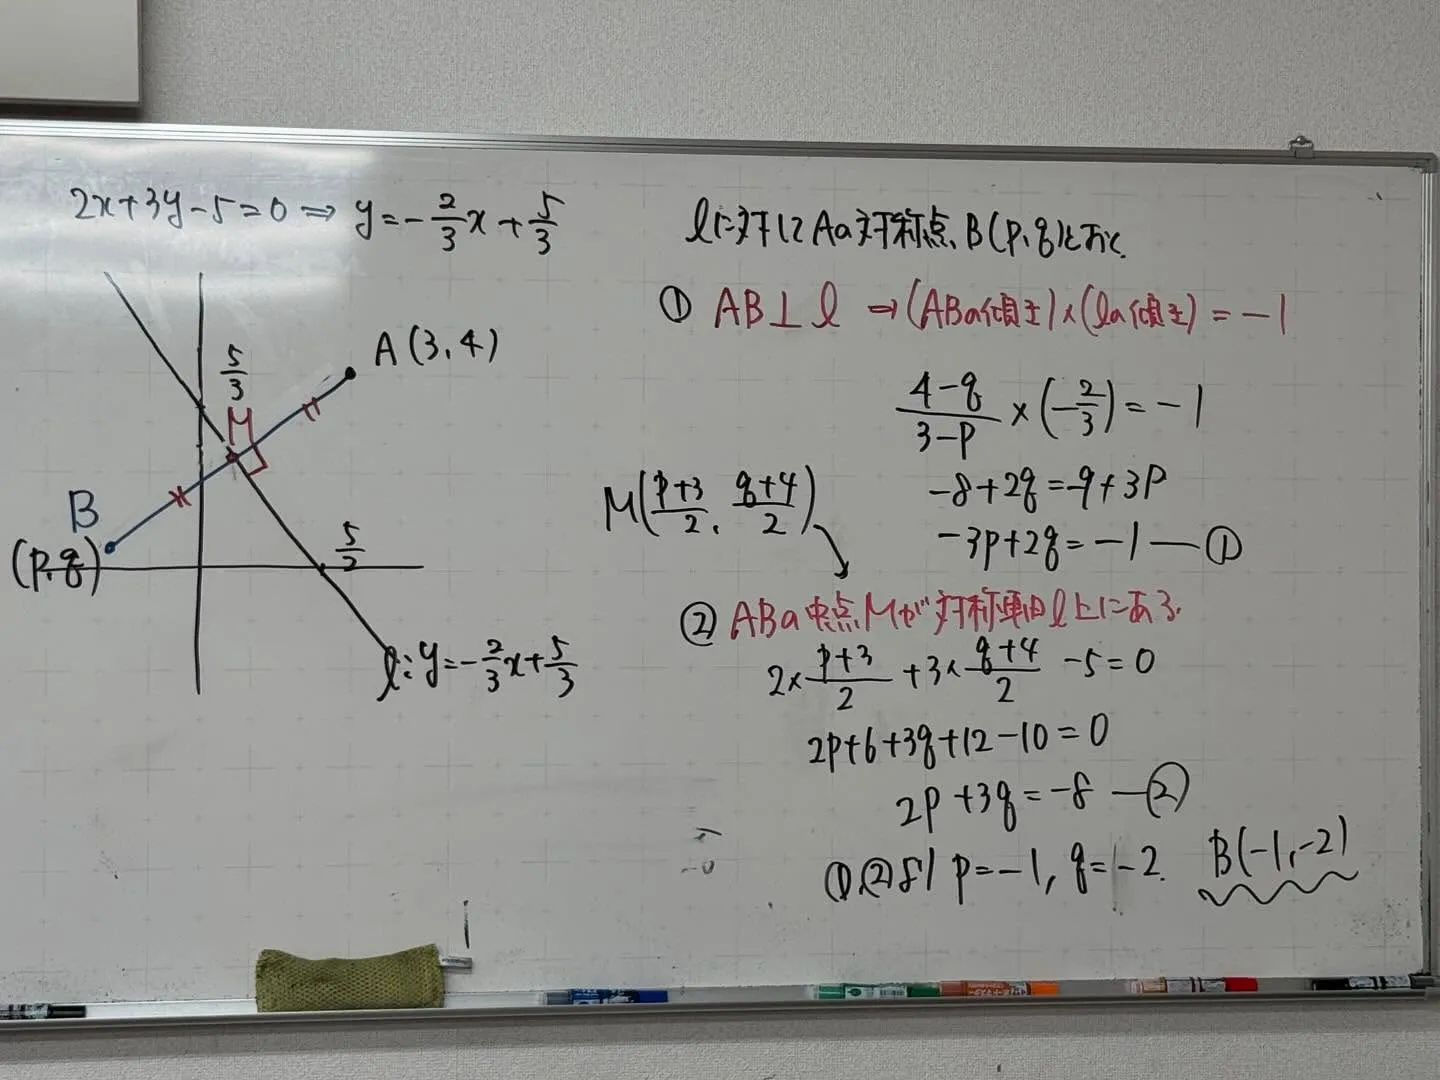 2x+3y-5=0 ⇒ y=-2/3x+5/3
5/3
A(3,4)
M
B
(p,q)
5/2
l:y=-2/3x+5/3
lに対してAの対称点、B(p,q)とおく.
① AB⊥l ⇒(ABの傾き)×(lの傾き)=-1
4-q/3-p×(-2/3)=-1
-8+2q=-9+3p
-3p+2q=-1—①
M(p+3/2, q+4/2)
② ABの中点Mが対称軸l上にある.
2×p+3/2+3×q+4/2-5=0
2p+6+3q+12-10=0
2p+3q=-8—②
①,②より p=-1, q=-2. B(-1,-2)